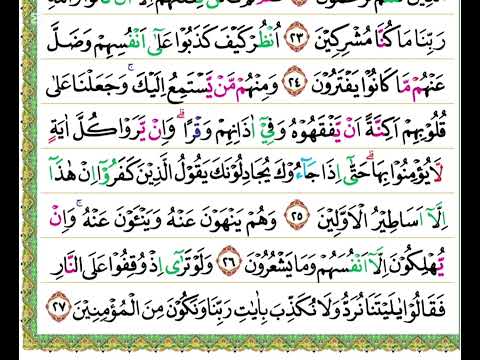 رَبِّنَا مَا كُنَّا مُشْرِكِيْنَ ۝٢٣ اُنْظُرْ كَيْفَ كَذَبُوْا عَلٰٓى اَنْفُسِهِمْ وَضَلَّ
عَنْهُمْ مَّا كَانُوْا يَفْتَرُوْنَ ۝٢٤ وَمِنْهُمْ مَّنْ يَّسْتَمِعُ اِلَيْكَ ۚ وَجَعَلْنَا عَلٰى
قُلُوْبِهِمْ اَكِنَّةً اَنْ يَّفْقَهُوْهُ وَفِيْٓ اٰذَانِهِمْ وَقْرًا ؕ وَاِنْ يَّرَوْا كُلَّ اٰيَةٍ
لَّا يُؤْمِنُوْا بِهَا ؕ حَتّٰٓى اِذَا جَآءُوْكَ يُجَادِلُوْنَكَ يَقُوْلُ الَّذِيْنَ كَفَرُوْٓا اِنْ هٰذَآ
اِلَّآ اَسَاطِيْرُ الْاَوَّلِيْنَ ۝٢٥ وَهُمْ يَنْهَوْنَ عَنْهُ وَيَنْـَٔوْنَ عَنْهُ ۚ وَاِنْ
يُّهْلِكُوْنَ اِلَّآ اَنْفُسَهُمْ وَمَا يَشْعُرُوْنَ ۝٢٦ وَلَوْ تَرٰٓى اِذْ وُقِفُوْا عَلَى النَّارِ
فَقَالُوْا يٰلَيْتَنَا نُرَدُّ وَلَا نُكَذِّبَ بِاٰيٰتِ رَبِّنَا وَنَكُوْنَ مِنَ الْمُؤْمِنِيْنَ ۝٢٧